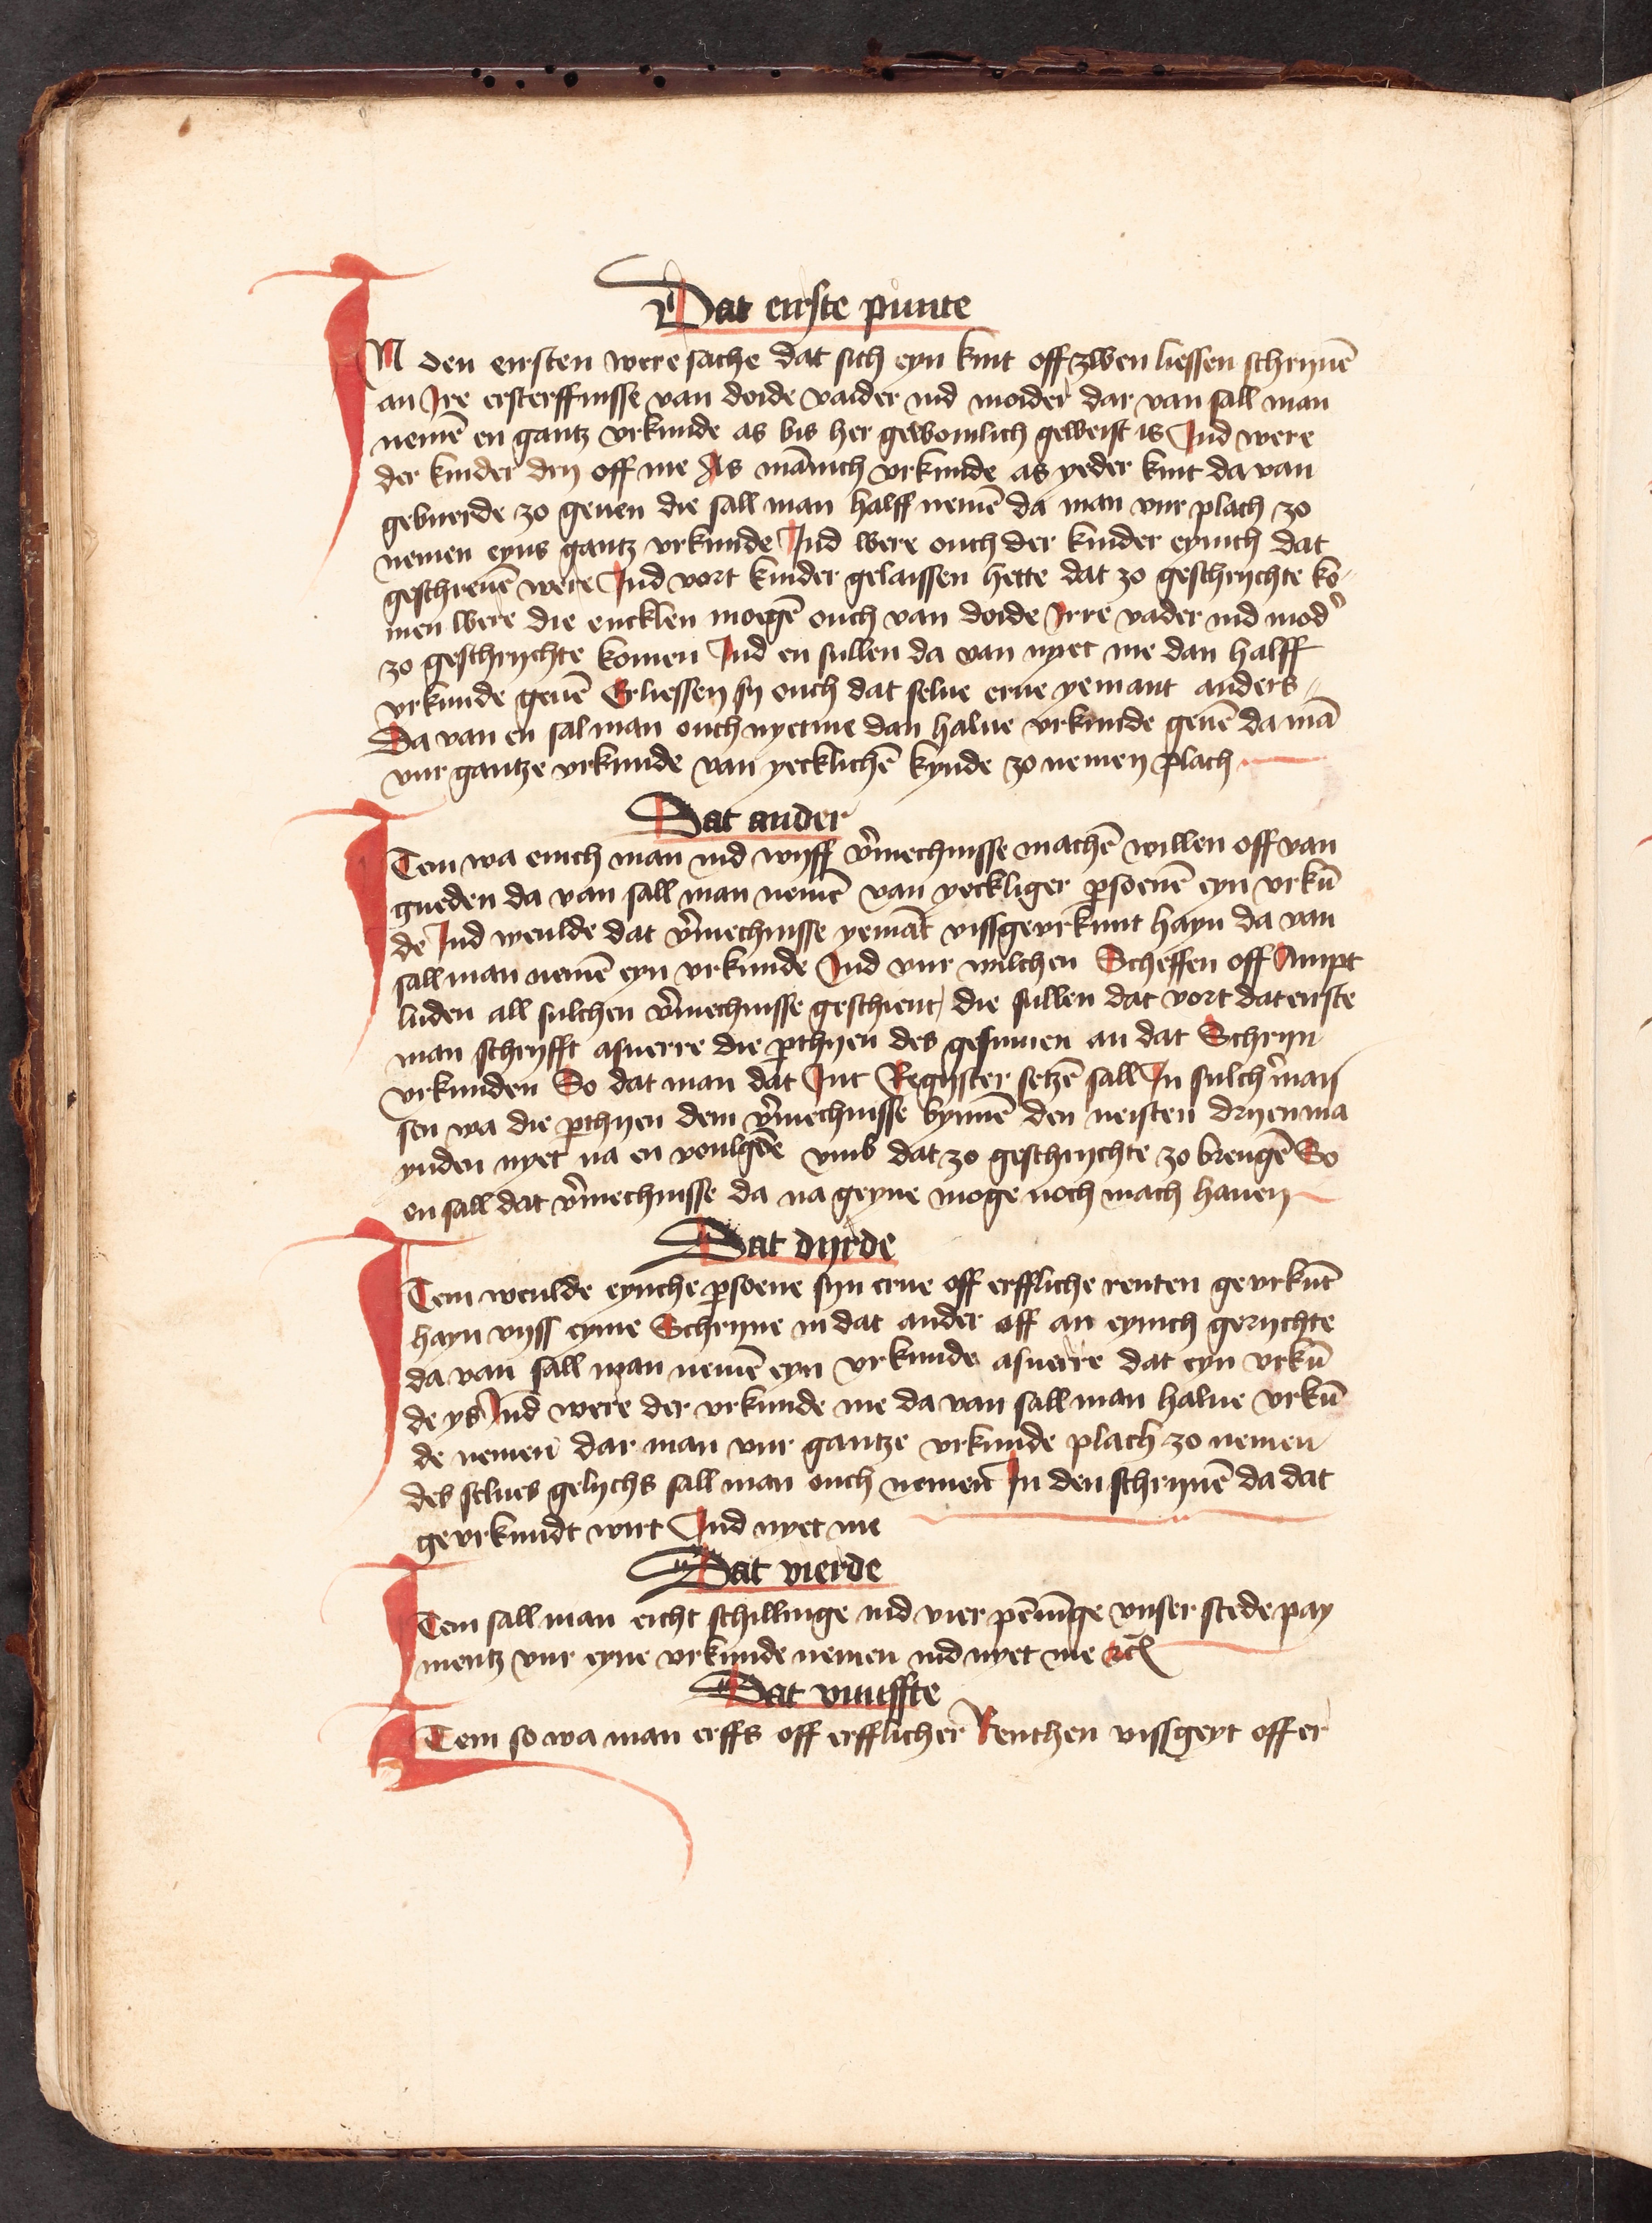 Dat eirste punte
IN den eirsten were sache dat sich eyn kint off zwen liessen schryuē
an Ire ersterffnisse van doide vaider ind moider dar van sall man
nemē en gantz vrkunde as bis her gewoinlich geweist is Ind were
der kinder dry off me As mānich vrkunde as yeder kint da van
gebuerde zo geuen die sall man halff nemē da man vur plach zo
nemen eyns gantz vrkunde Ind were ouch der kinder eynich dat
geschreuē were Ind vort kinder gelaissen hette dat zo geschrychte ko-
men were die encklen moegē ouch van doide Irre vader ind mod'
zo geschrychte komen Ind en sullen da van nyet me dan halff
vrkunde geuē Erliessen sy ouch dat selue erue yemant anders
Da van en sal man ouch nyet me dan halue vrkunde geuē da mā
vur gantze vrkunde van yecklichē kynde zo nemen plach
Dat ander
ITem wa enich man ind wyff v'mechnisse machē willen off van
gueden da van sall man nemē van yeckliger psoenē eyn vrkū
de Ind weulde dat v'mechnisse yemāt vissgevrkunt hayn da van
sall man nemē eyn vrkunde Ind vur wilchen Scheffen off Ampt
luden all sulchen v'mechnisse geschient, die sullen dat vort dat eirste
man schryfft asuerre die pthyen des gesinnen an dat Schryn
vrkunden So dat man dat Int Regyster setzē sall In sulch' man
sen wa die pthyen dem v'mechnisse bynnē den neisten dryen ma
ynden nyet na en voulgēde vmb dat zo geschrychte zo brengē So
en sall dat v'mechnisse da na geyne moge noch mach hauen
Dat dyrde
ITem weulde eynche psoene syn erue off erffliche renten gevrkūt
hayn vyss eyme Schryne in dat ander off an eynich gerychte
da van sall man nemē eyn vrkunde asuerre dat eyn vrkū
de ys Ind were der vrkunde me da van sall man halue vrkū
de nemen dar man vur gantze vrkunde plach zo nemen
des selues gelychs sall man ouch nemen In den schrynē da dat
gevrkundt wirt Ind nyet me
Dat vierde
ITem sall man eicht schillinge ind vier pēnīge vnser stede pay
mentz vur eyne vrkunde nemen ind nyet me ꝛc̄
Dat vunffte
ITem so wa man erffs off erfflicher Renthen vissgeyt off er